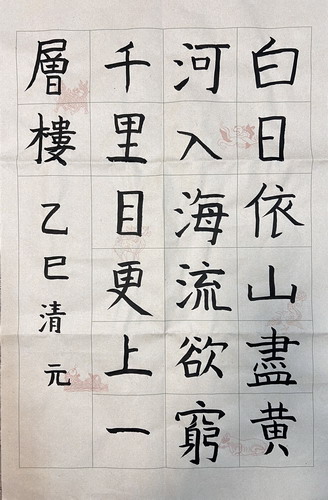 白日依山盡黄
河入海流欲窮
千里目更上一
層樓
乙巳清元